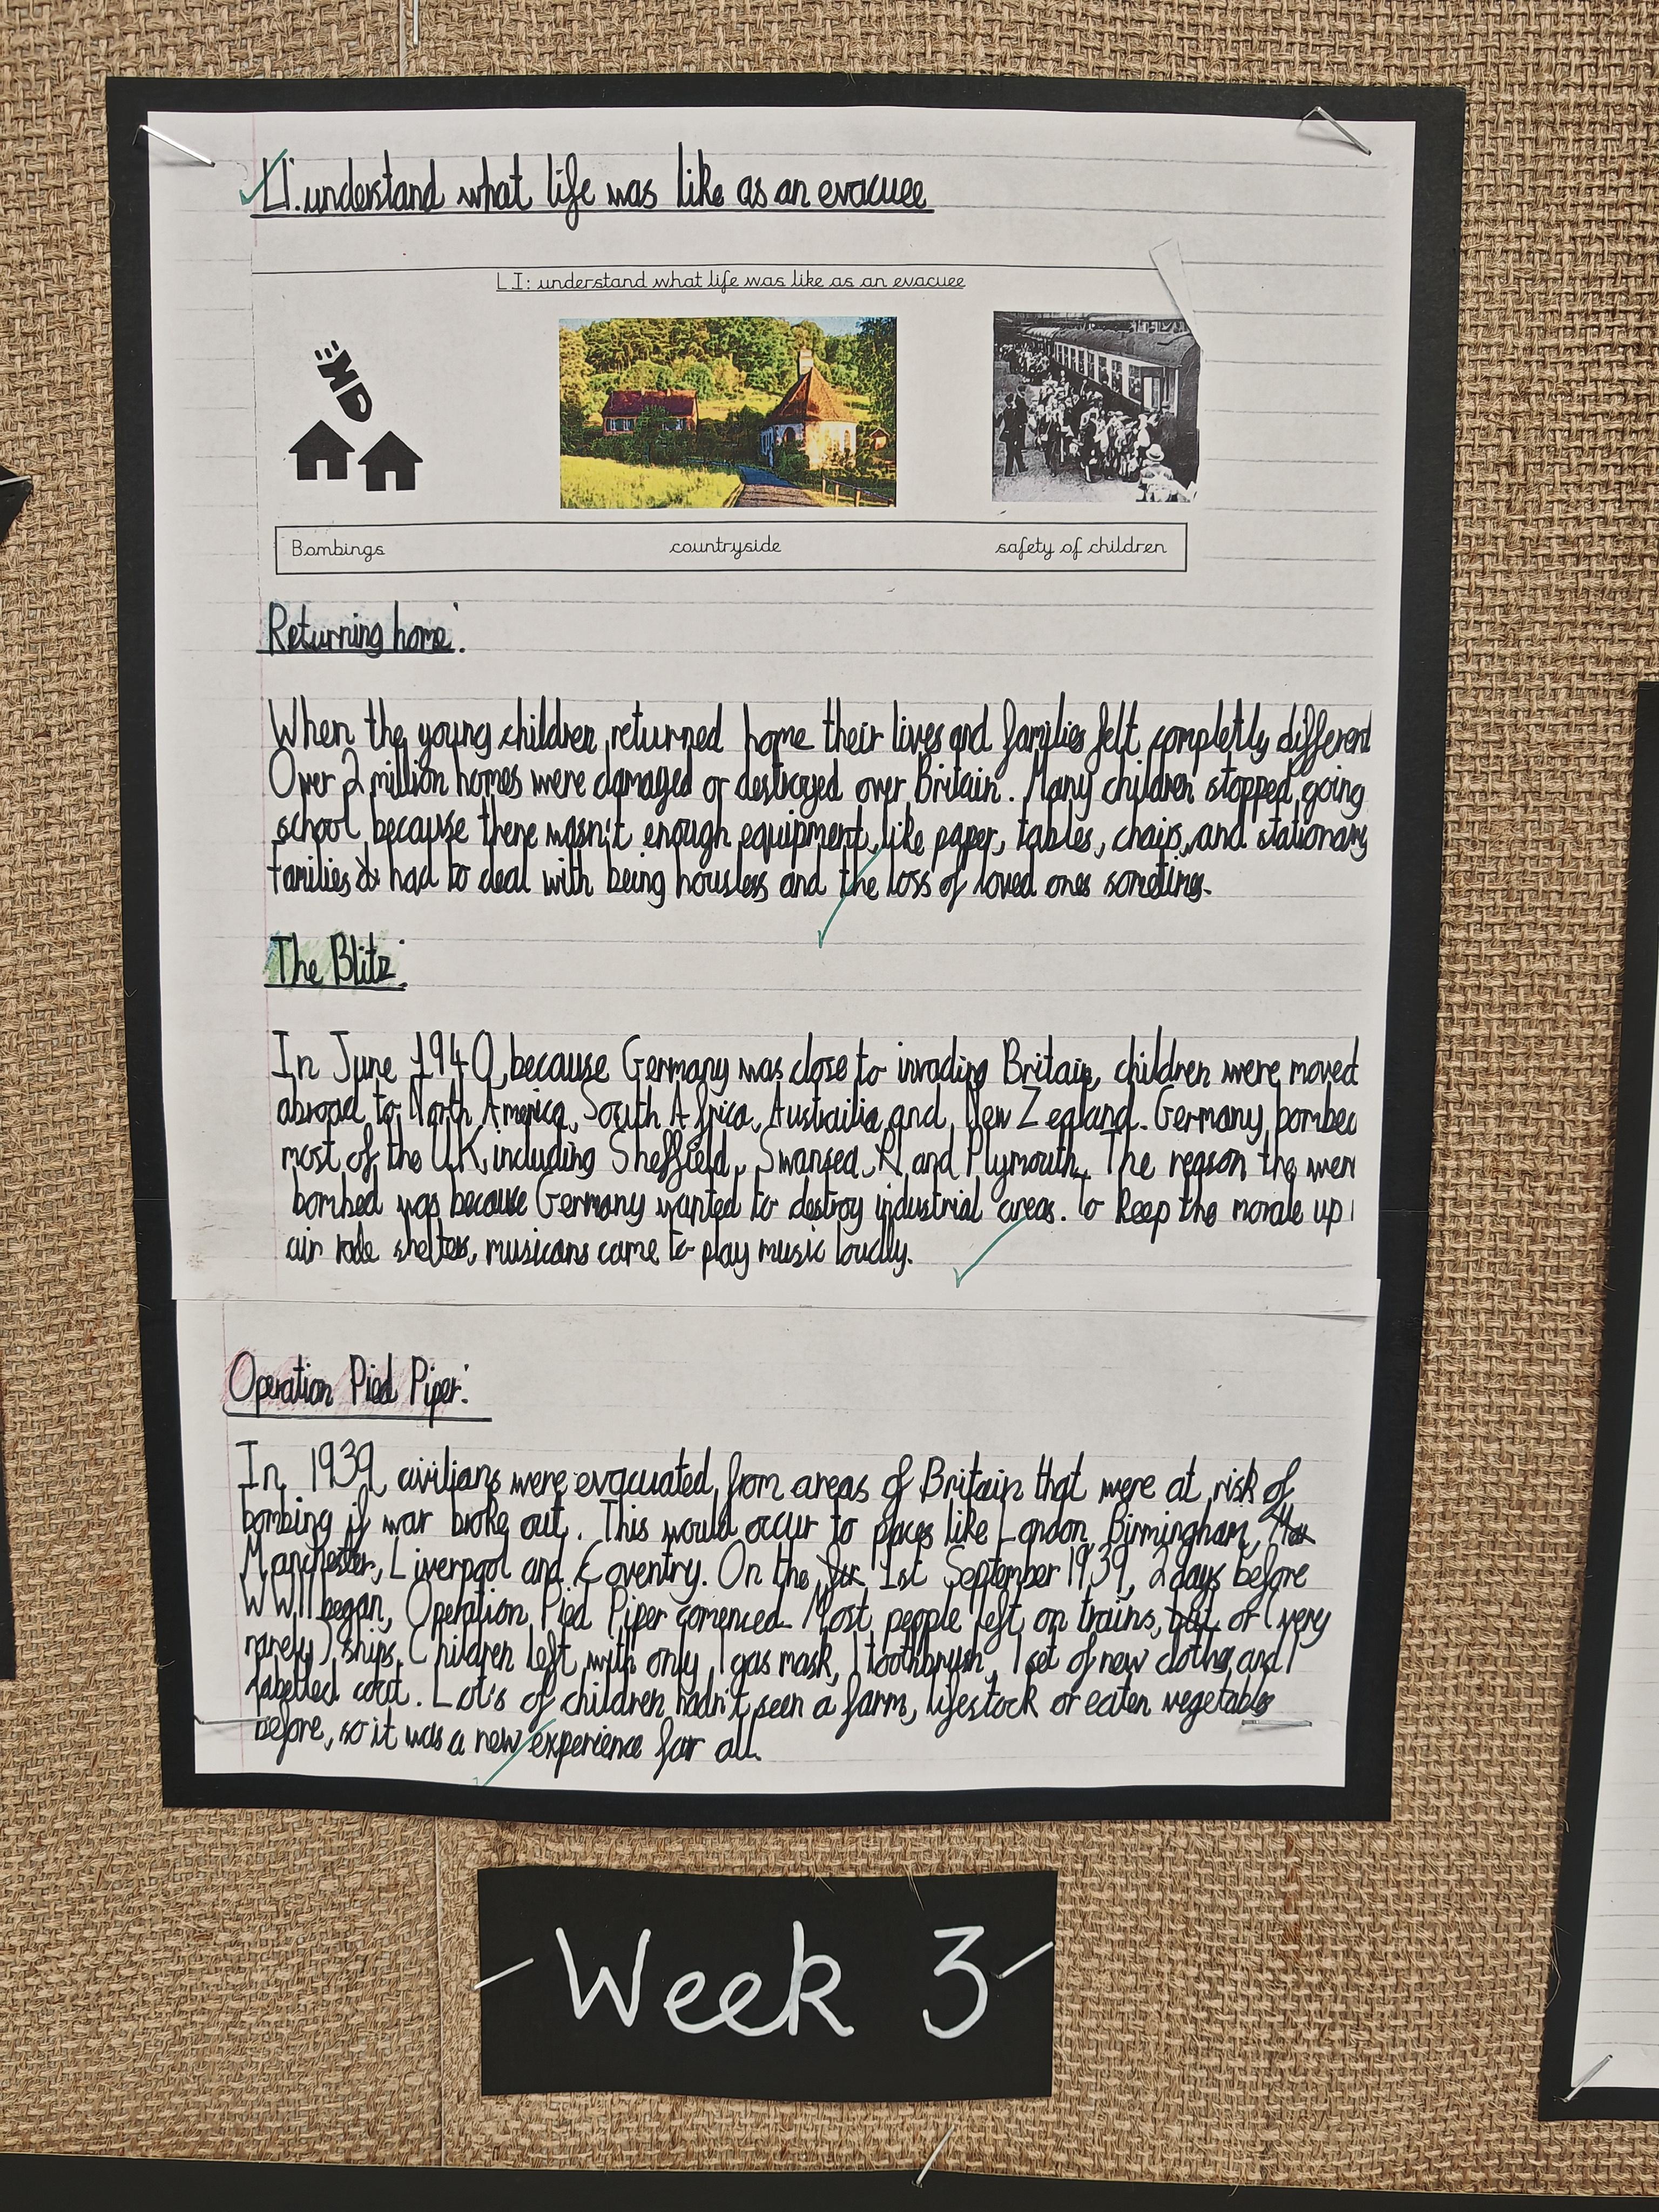 LI: understand what life was like as an evacuee
LI: understand what life was like as an evacuee
Bombings countryside safety of children
Returning home:
When the young children returned home their lives and families felt completly different
Over 2 million homes were damaged or destroyed over Britain. Many children stopped going
school because there wasn't enough equipment, like paper, tables, chairs, and stationary
families had to deal with being housless and the loss of loved ones sometimes.
The Blitz:
In June 1940, because Germany was close to invading Britain, children were moved
abroad to North America, South Africa, Austrailia and New Zealand. Germany bombed
most of the UK, including Sheffield, Swansea, and Plymouth. The reason the were
bombed was because Germany wanted to destroy industrial areas. To keep the morale up
air shelters, musicans came to play music loudly.
Operation Pied Piper:
In 1939, civilians were evacuated from areas of Britain that were at risk of
bombing if war broke out. This would occur to places like London, Birmingham,
Manchester, Liverpool and Coventry. On the 1st September 1939, 2 days before
WWII began, Operation Pied Piper comenced. Most people left on trains, or (very
rarely) ships. Children left with only 1 gas mask, 1 toothbrush, 1 set of new cloths and 1
labelled coat. Lot's of children hadn't seen a farm, lifestock or eaten vegetables
before, so it was a new experience for all.
Week 3